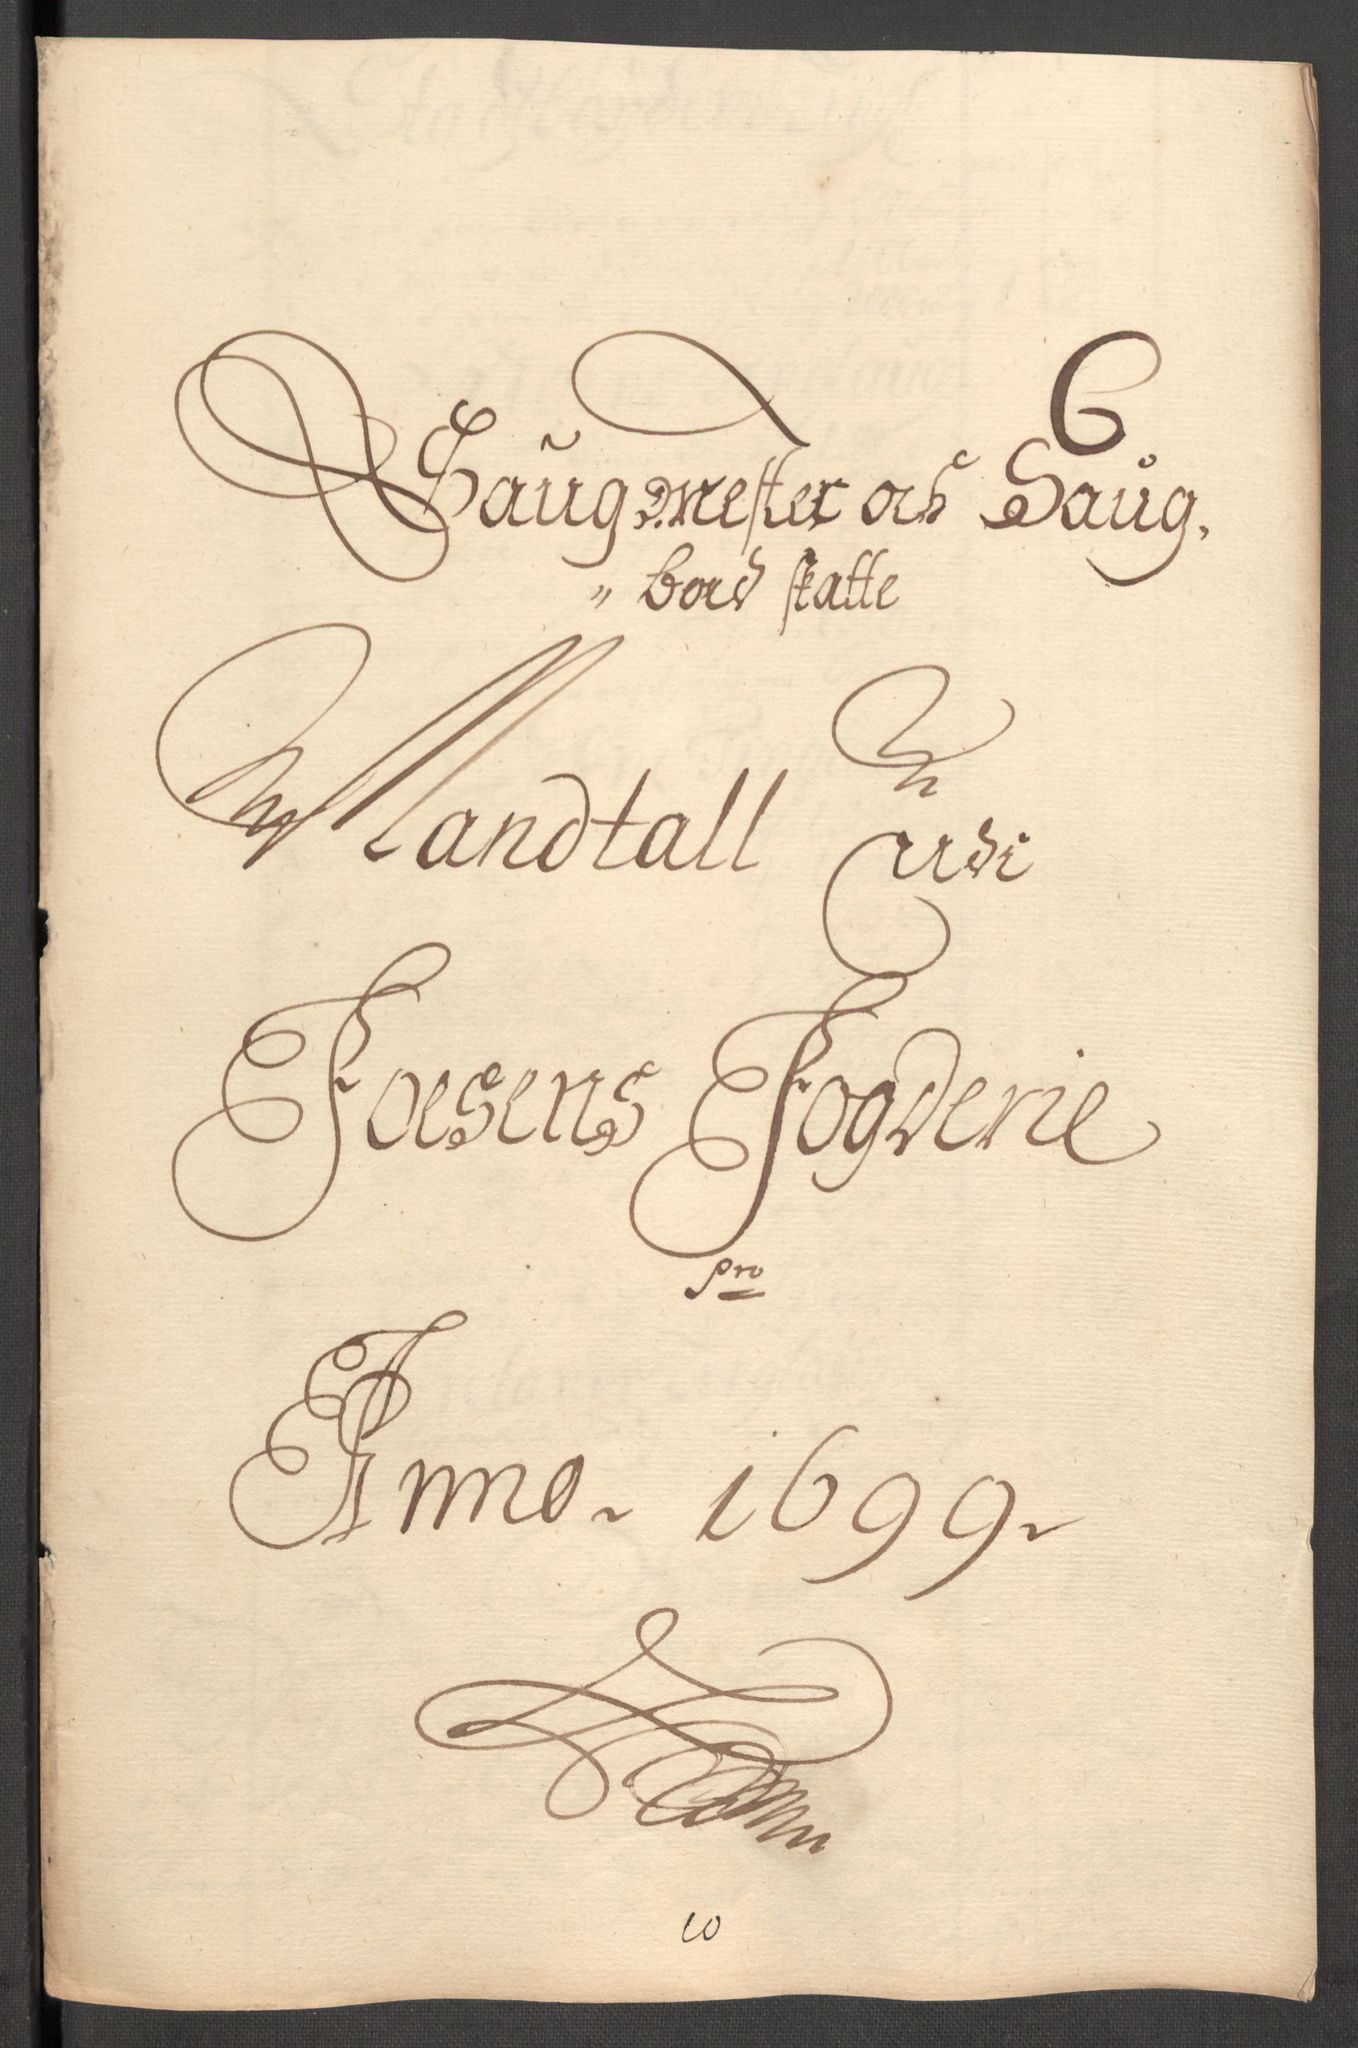 6
Saugmester och Saug,
„ bord skatte
Mandtall udi
Foesens Fogderie
pro
Anno 1699
10